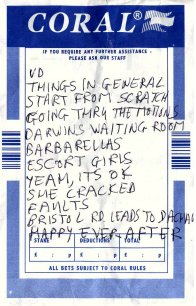 CORAL®
IF YOU REQUIRE ANY FURTHER ASSISTANCE -
PLEASE ASK OUR STAFF
VD
THINGS IN GENERAL
START FROM SCRATCH
GOING THRU THE MOTIONS
DARWINS WAITING ROOM
BARBARELLAS
ESCORT GIRLS
YEAH, ITS OK
SHE CRACKED
FAULTS
BRISTOL RD LEADS TO DACHAU
HAPPY EVER AFTER
STAKE DEDUCTIONS TOTAL
£ : p £ : p £ : p
ALL BETS SUBJECT TO CORAL RULES